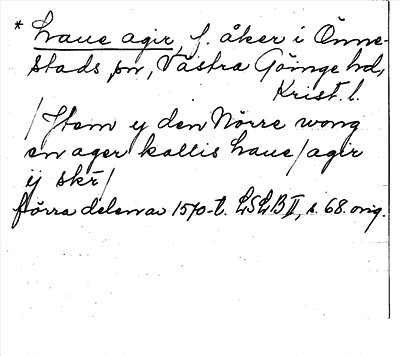 * Laue agir, f. åker i Önne-
stads sn, Västra Göinge hd,
Krist. l.
/Jtem y den Nörre wong
en ager kallis Laue/agir
ij skr/
förra delen av 1570-t. LSLB II, s. 68. orig.